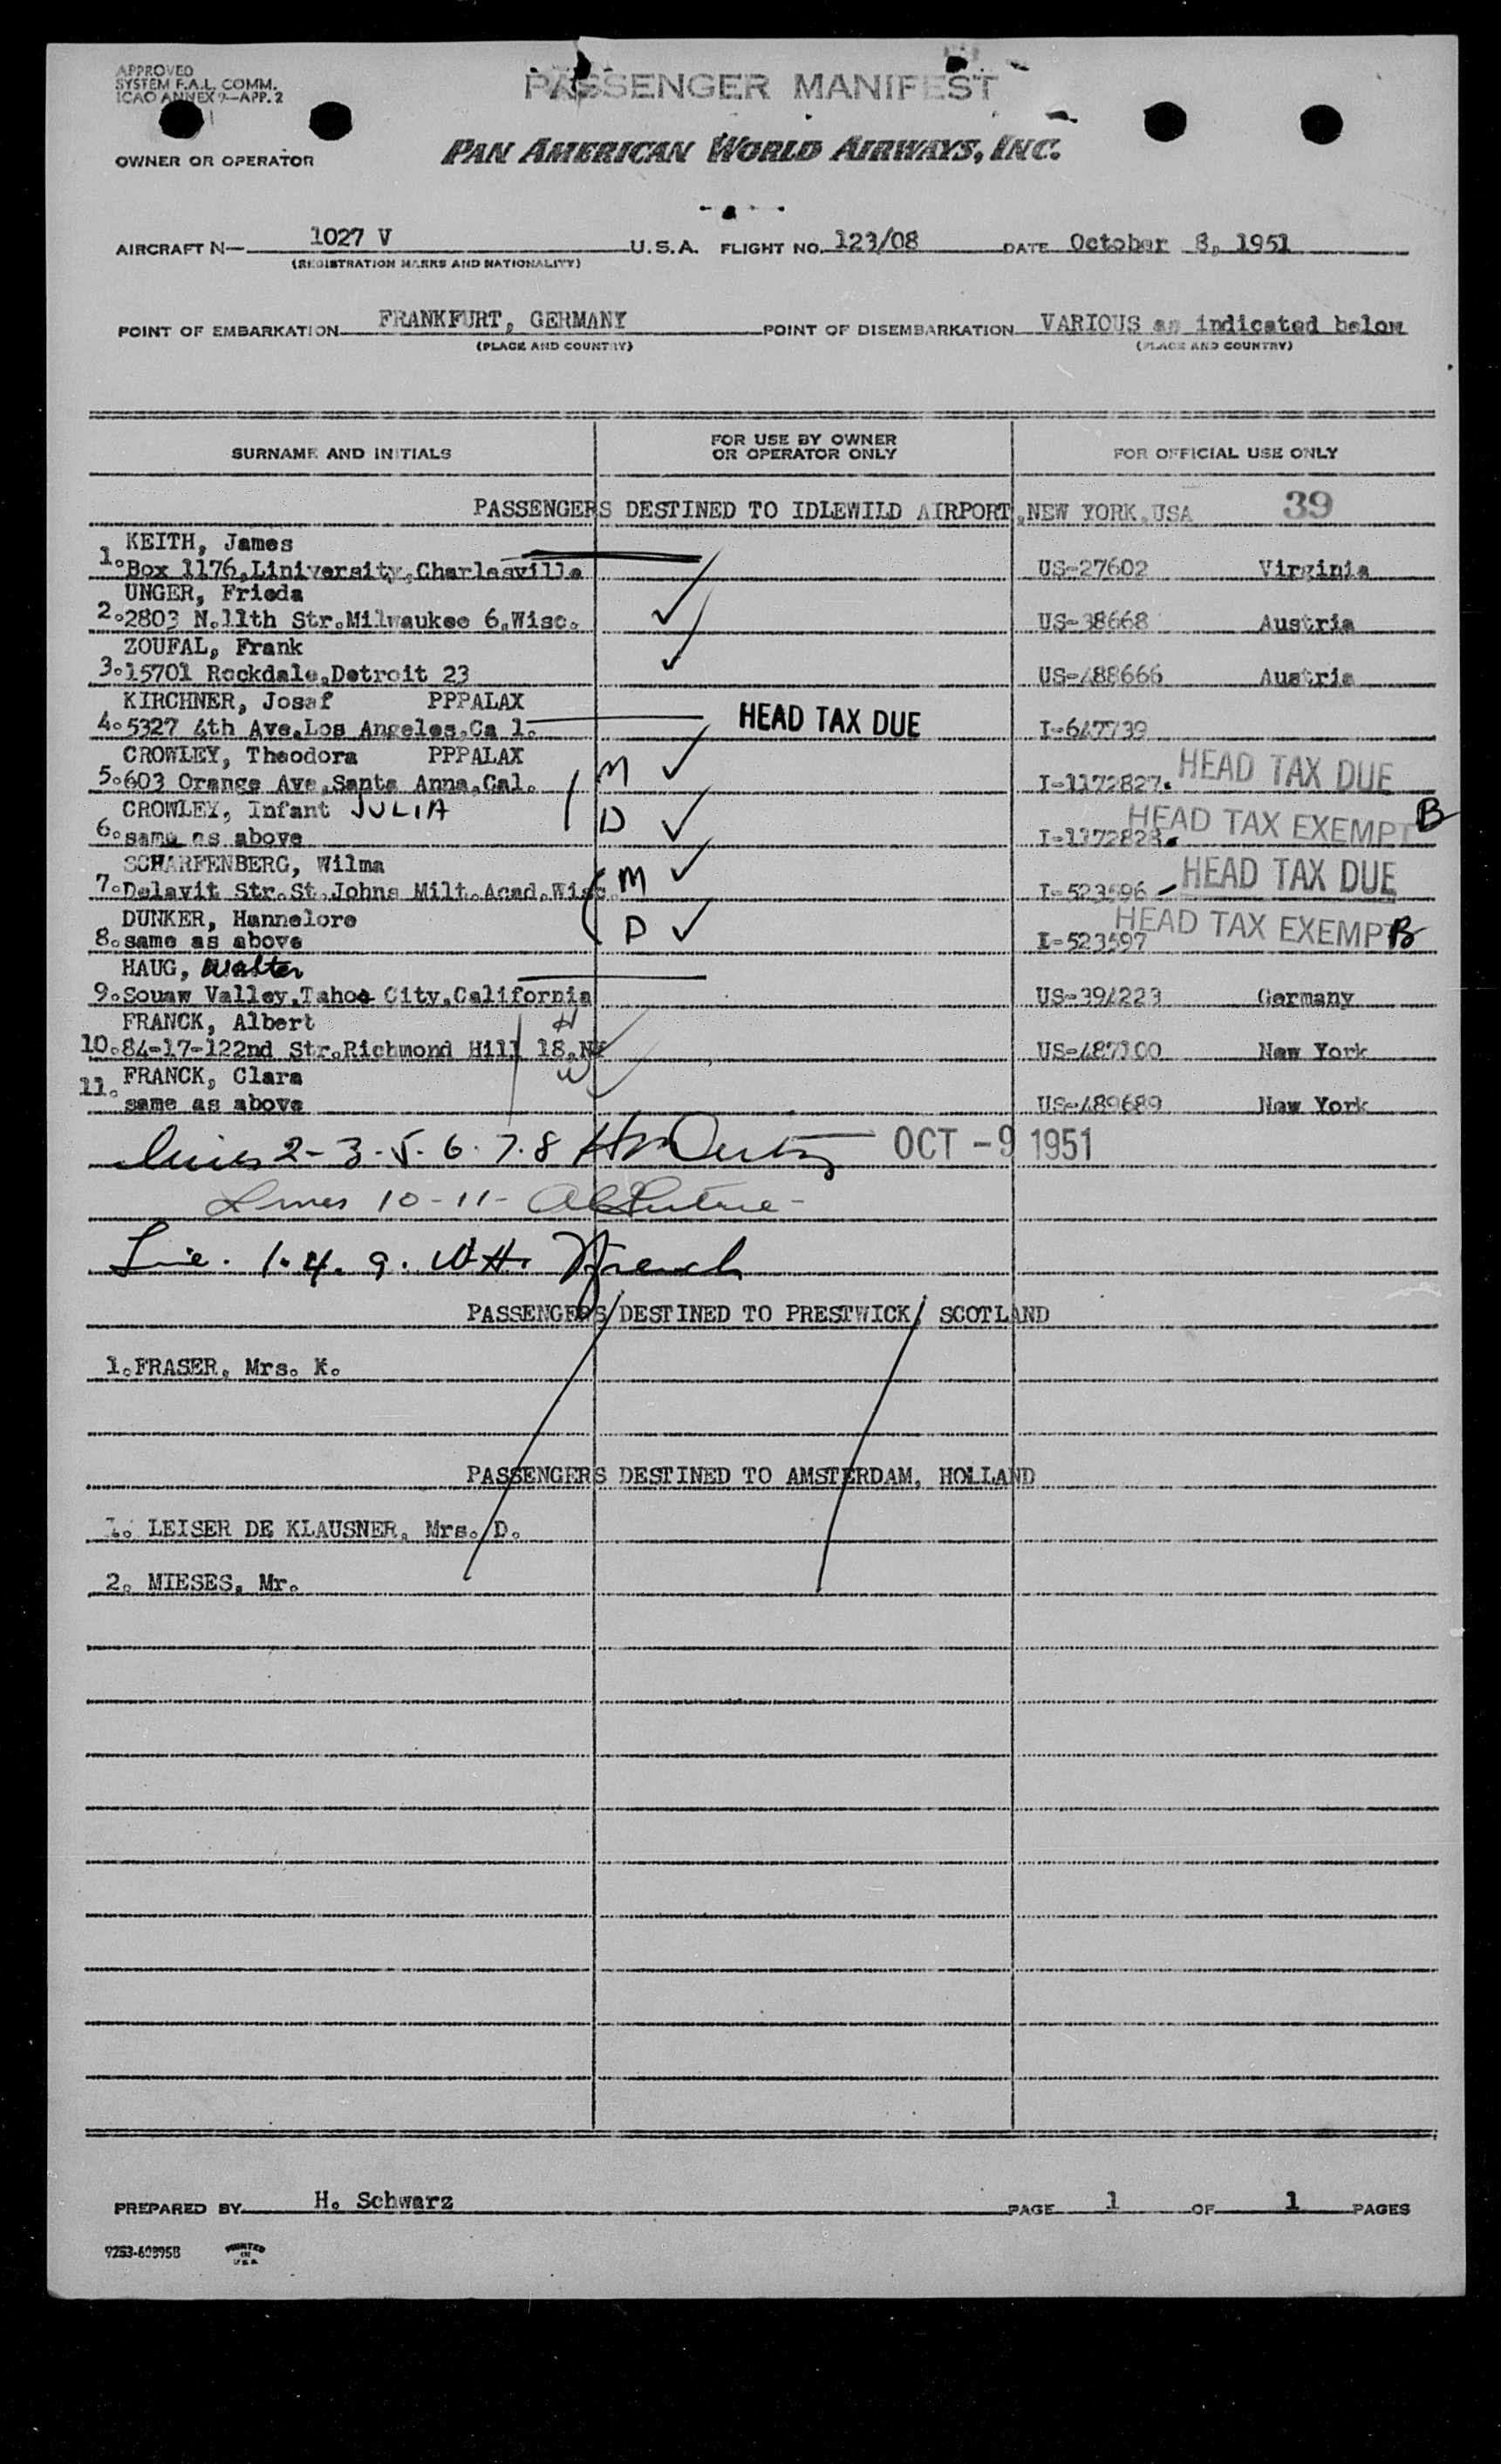 APPROVED
SYSTEM F.A.L. COMM.
ICAO ANNEX 9—APP. 2
PASSENGER MANIFEST
OWNER OR OPERATOR
PAN AMERICAN WORLD AIRWAYS, INC.
AIRCRAFT N— 1027 V U.S.A. FLIGHT NO. 123/08 DATE October 8, 1951
(REGISTRATION MARKS AND NATIONALITY)
POINT OF EMBARKATION FRANKFURT, GERMANY POINT OF DISEMBARKATION VARIOUS as indicated below
(PLACE AND COUNTRY) (PLACE AND COUNTRY)
SURNAME AND INITIALS FOR USE BY OWNER OR OPERATOR ONLY FOR OFFICIAL USE ONLY
PASSENGERS DESTINED TO IDLEWILD AIRPORT, NEW YORK, USA 39
KEITH, James
1. Box 1176, Liniversity, Charlesville US-27602 Virginia
UNGER, Frieda
2. 2803 N.11th Str.Milwaukee 6, Wisc. US-38668 Austria
ZOUFAL, Frank
3. 15701 Rockdale, Detroit 23 US-488666 Austria
KIRCHNER, Josef PPPALAX
4. 5327 4th Ave, Los Angeles, Ca l. HEAD TAX DUE I-647739
CROWLEY, Theodora PPPALAX
5. 603 Orange Ave, Santa Anna, Cal. M I-1172827. HEAD TAX DUE
CROWLEY, Infant JULIA
6. same as above D I-1172828. HEAD TAX EXEMPT B
SCHARFENBERG, Wilma
7. Delavit Str. St. Johns Milt. Acad, Wisc. M I-523596 HEAD TAX DUE
DUNKER, Hannelore
8. same as above D I-523597 HEAD TAX EXEMPT B
HAUG, Walter
9. Souaw Valley, Tahoe City, California US-394223 Germany
FRANCK, Albert H
10. 84-17-122nd Str. Richmond Hill 18, NY US-487100 New York
FRANCK, Clara W
11. same as above US-489689 New York
Lines 2-3-5-6-7-8 OCT -9 1951
Lines 10-11-
Lie. 1. 4. 9. W.H. French
PASSENGERS DESTINED TO PRESTWICK/ SCOTLAND
1. FRASER, Mrs. K.
PASSENGERS DESTINED TO AMSTERDAM, HOLLAND
1. LEISER DE KLAUSNER, Mrs. D.
2. MIESES, Mr.
PREPARED BY H. Schwarz PAGE 1 OF 1 PAGES
PRINTED IN U.S.A.